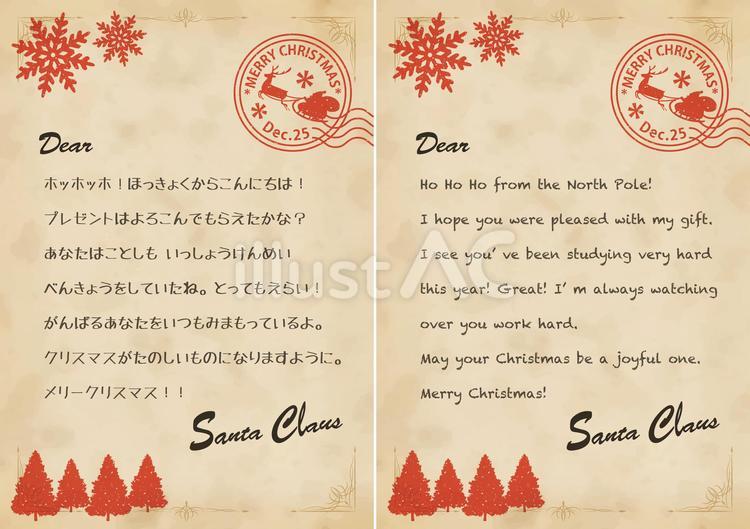 MERRY CHRISTMAS
Dec.25
Dear
ホッホッホ！ほっきょくからこんにちは！
プレゼントはよろこんでもらえたかな？
あなたはことしも いっしょうけんめい
べんきょうをしていたね。とってもえらい！
がんばるあなたをいつもみまもっているよ。
クリスマスがたのしいものになりますように。
メリークリスマス！！
Santa Claus
MERRY CHRISTMAS
Dec.25
Dear
Ho Ho Ho from the North Pole!
I hope you were pleased with my gift.
I see you' ve been studying very hard
this year! Great! I' m always watching
over you work hard.
May your Christmas be a joyful one.
Merry Christmas!
Santa Claus
illust AC